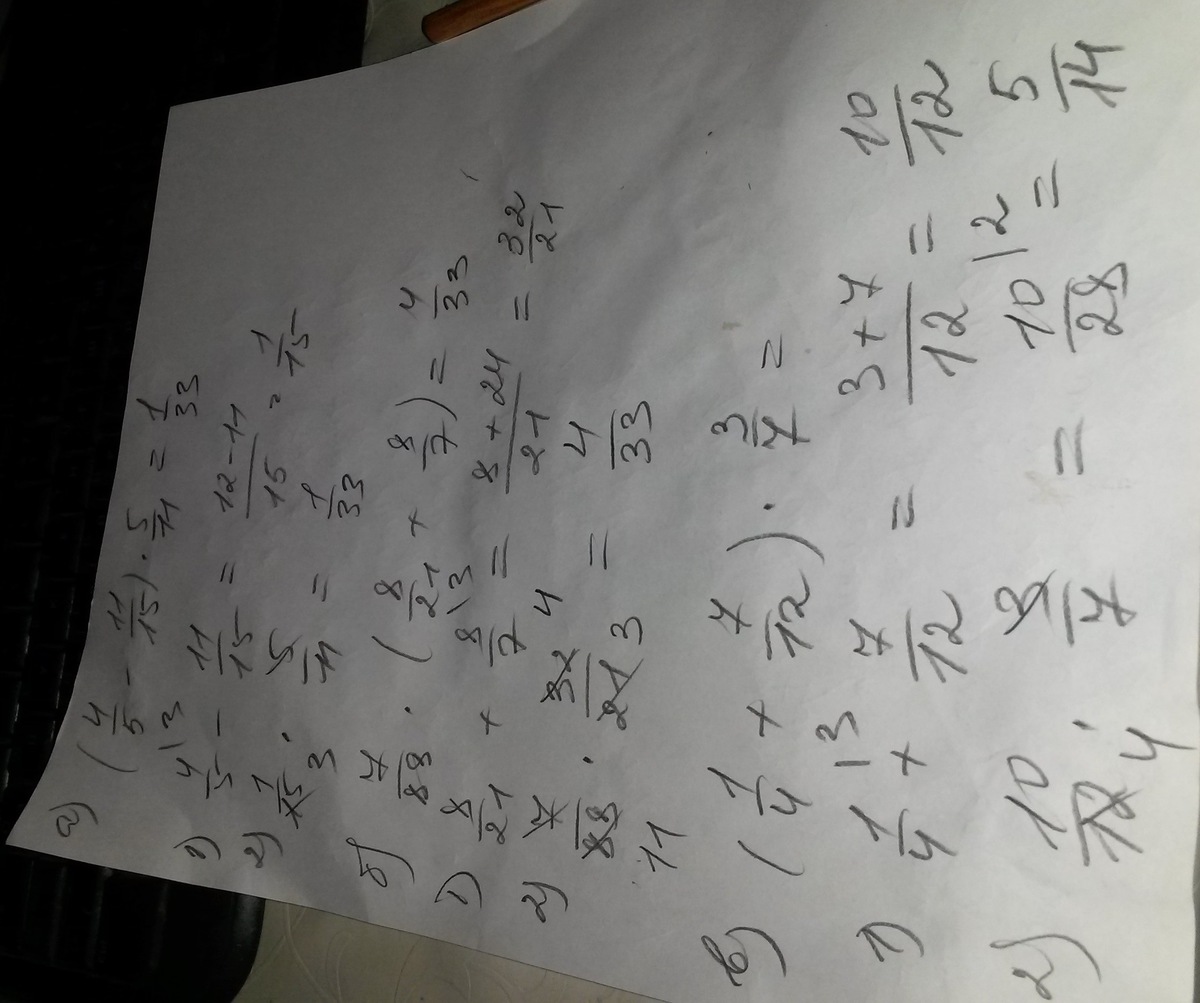 а) (4/5 - 11/15) · 5/11 = 1/33
1) 4/5 |3 - 11/15 = 12-11/15 = 1/15
2) 1/15 3 · 5/11 = 1/33
б) 7/88 · (8/21 + 8/7) = 4/33
1) 8/21 + 8/7 |3 = 8+24/21 = 32/21
2) 7/88 11 · 32/21 4 3 = 4/33
в) (1/4 + 7/12) · 3/7 =
1) 1/4 |3 + 7/12 = 3+7/12 = 10/12
2) 10/12 4 · 3/7 = 10/28 |2 = 5/14